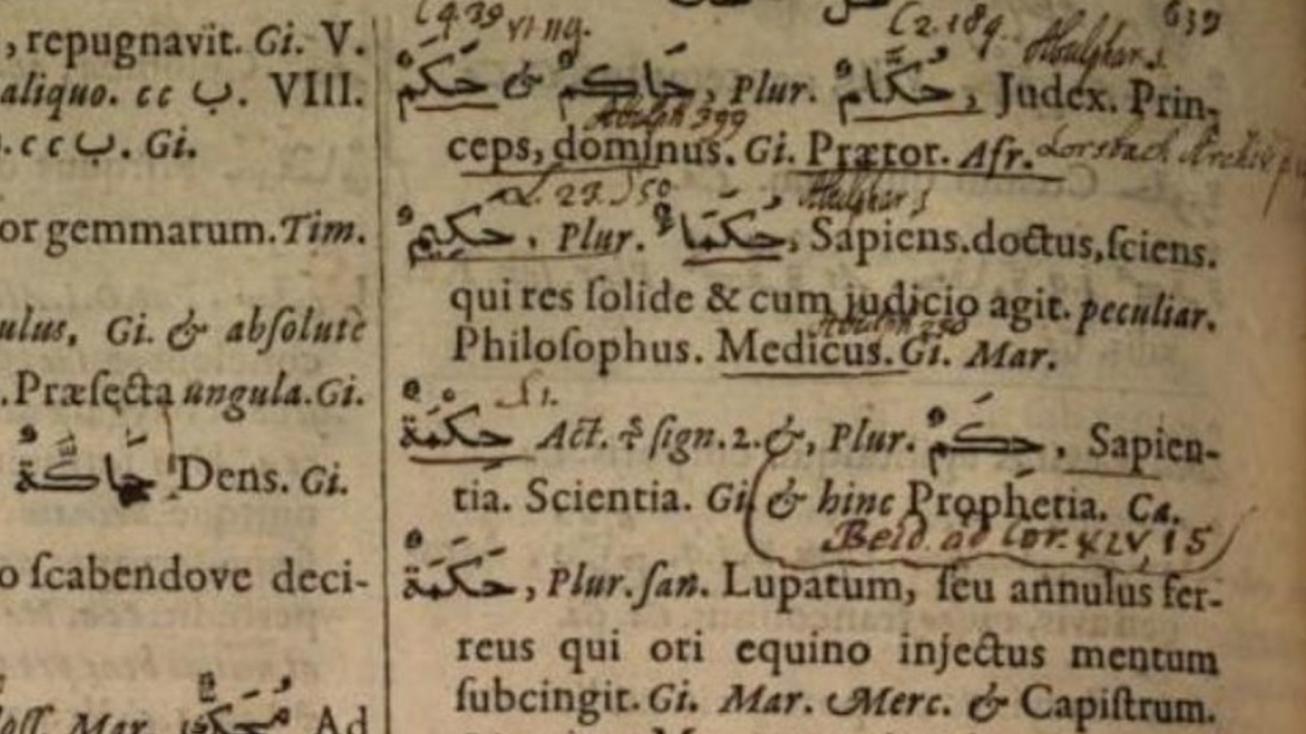 , repugnavit. Gi. V.
aliquo. cc ب. VIII.
. cc ب. Gi.
or gemmarum. Tim.
ulus, Gi. & absolutè
. Præsecta ungula. Gi.
حَاكَّةٌ Dens. Gi.
o scabendove deci-
Mar. Ad
639
C 2.189. Abulphar.
حَكَمٌ & حَاكِمٌ, Plur. حُكَّامٌ, Judex. Prin-
Abulph 399
ceps, dominus. Gi. Prætor. Afr. Lorsbach Archiv
Abulphar
حَكِيمٌ, Plur. حُكَمَا, Sapiens. doctus, sciens.
qui res solide & cum judicio agit. peculiar.
Philosophus. Medicus. Gi. Mar.
حِكْمَةٌ Act. & sign. 2. &, Plur. حِكَمٌ, Sapien-
tia. Scientia. Gi. & hinc Prophetia. Ca.
Beid. ad Cor. XLV, 15
حَكَمَةٌ, Plur. san. Lupatum, seu annulus fer-
reus qui ori equino injectus mentum
subcingit. Gi. Mar. Merc. & Capistrum.